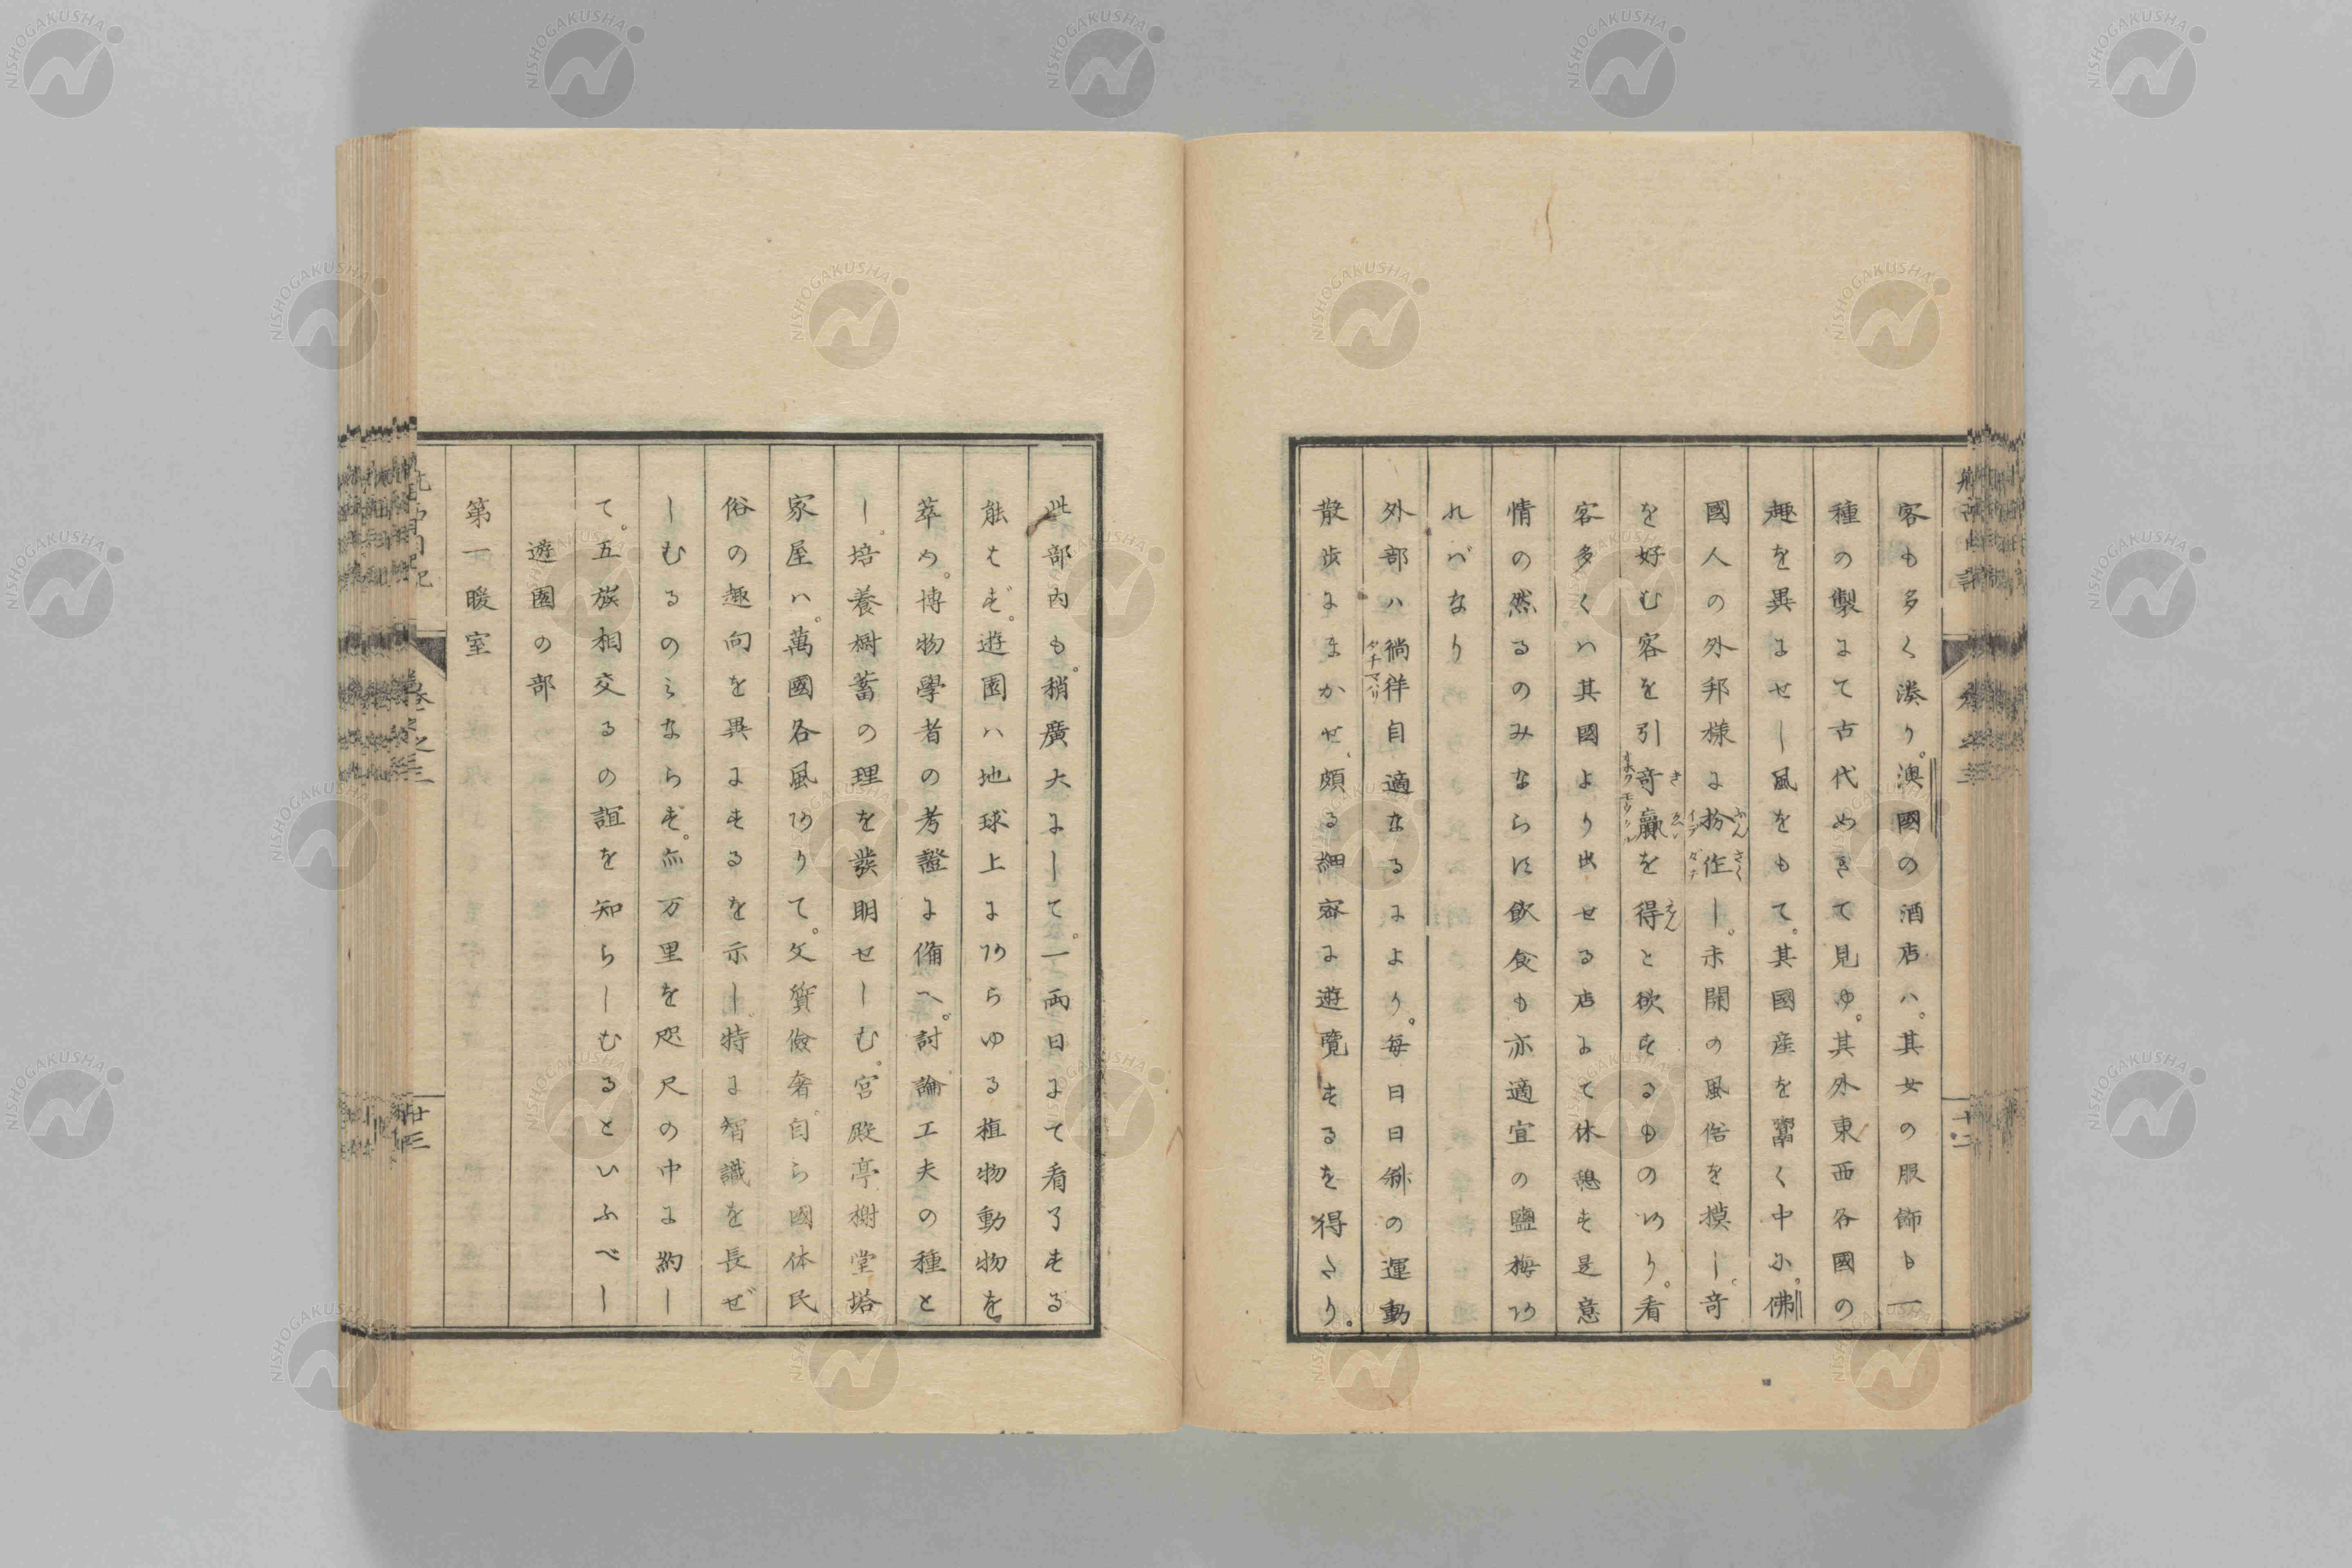 客も多く湊り。澳國の酒店ハ。其女の服飾も一
種の製にて古代めきて見ゆ。其外東西各國の
趣を異にせし風をもて。其國産を鬻く中に。佛
國人の外邦様に扮作し。未開の風俗を摸し。奇
を好む客を引奇贏を得んと欲するものあり。看
客多くハ其國より出せる店にて休憩す是意
情の然るのみならに飲食も亦適宜の鹽梅あ
れバなり
外部ハ徜徉自適なるにより。毎日日耀の運動
散歩にまかせ、頗る細密に遊覧するを得たり。
此部内も。稍廣大にして。一両日にて看了する
能はず。遊園ハ地球上にあらゆる植物動物を
萃め。博物學者の考證に備へ。討論工夫の種と
し。培養樹蓄の理を發明せしむ。宮殿亭榭堂塔
家屋ハ。萬國各風ありて。文質儉奢。自ら國体民
俗の趣向を異にするを示し。特に智識を長ぜ
しむるのミならず。亦万里を咫尺の中に約し
て。五族相交るの誼を知らしむるといふべし
遊園の部
第一暖室